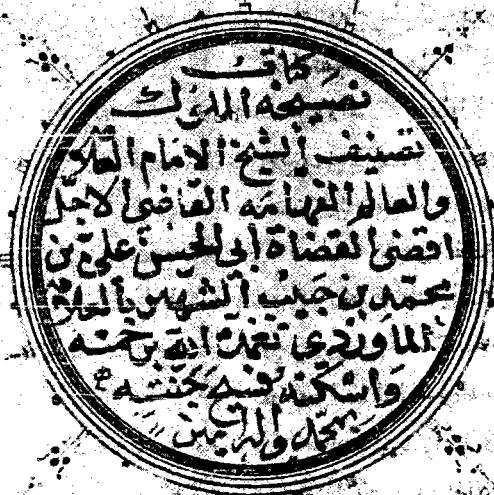 كتاب
نصيحة الملوك
تصنيف الشيخ الامام العلامة
والعالم الفهامه القاضي الاجل
اقضى القضاة أبي الحسن علي بن
محمد بن حبيب الشهير بالعلامة
الماوردي تغمده الله برحمته
واسكنه فسيح جنته
بمحمد وآله امين